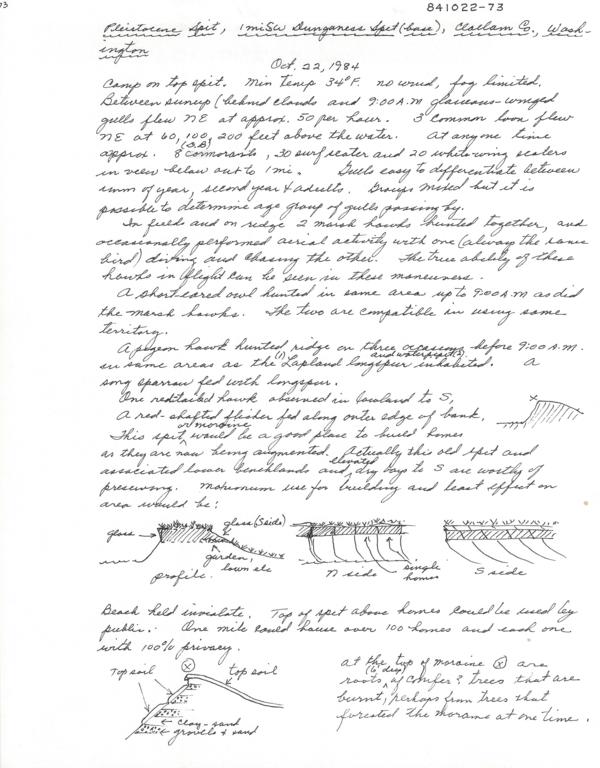 73
841022-73
Pleistocene Spit, 1 mi SW Dungeness Spit (base), Clallam Co., Wash-
ington
Oct. 22, 1984
Camp on top spit. Min Temp 34°F. no wind, fog limited.
Between sunup (behind clouds and 9:00 A.M glaucous-winged
gulls flew NE at approx. 50 per hour. 3 common loon flew
NE at 60, 100, 200 feet above the water. At any one time
approx. 8 (O.B) cormorants, 30 surf scoter and 20 white-wing scoters
in view below out to 1 mi. Gulls easy to differentiate between
imm of year, second year & adults. Groups mixed but it is
possible to determine age group of gulls passing by.
In field and on ridge 2 marsh hawks hunted together, and
occasionally performed aerial activity with one (always the same
bird) diving and chasing the other. The true ability of these
hawks in flight can be seen in these maneuvers.
A short-eared owl hunted in same area up to 9:00 A.M as did
the marsh hawks. The two are compatible in using same
territory.
A pigeon hawk hunted ridge on three occasions before 9:00 A.M.
in same areas as the (1) Lapland longspur and water pipit (2) inhabited. A
song sparrow fed with longspur.
One redtailed hawk observed in lowland to S,
A red-shafted flicker fed along outer edge of bank. x
This spit, or moraine would be a good place to build homes
as they are now being augmented. Actually this old spit and
associated lower benchlands and, elevated dry bays to S are worthy of
preserving. Maximum use for building and least effect on
area would be:
glass
glass (S side)
garden,
lawn etc
profile.
N side
single
homes
S side
Beach held inviolate. Top of spit above homes could be used by
public. One mile could house over 100 homes and each one
with 100% privacy.
Top soil
X
top soil
clay-sand
gravels & sand
at the top of moraine (x) are
roots (6' deep), of conifer? trees that are
burnt, perhaps from trees that
forested the moraine at one time.